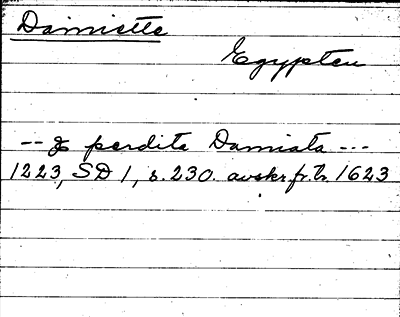 Damiette
Egypten
-- & perdita Damiata ---
1223, SD 1, s. 230. avskr. fr. b. 1623